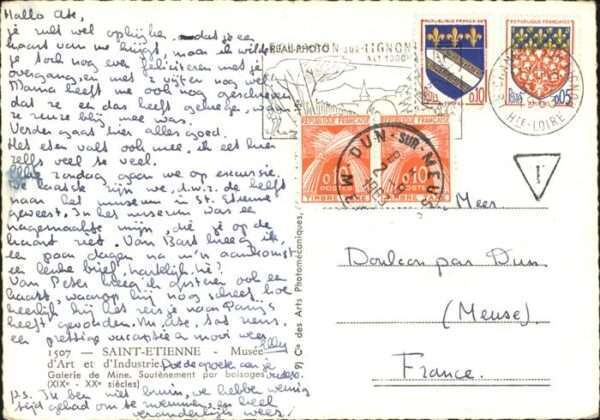 Hallo Ate,
je zult wel opkijken, dat je een
kaart van me krijgt, maar ik wilde
je toch nog even feliciteren met je
overgang, en met 2 vijfen nog wel.
Mama heeft me ook nog geschreven
dat ze een das heeft gekregen, waar
ze reuze blij mee was.
Verder gaat hier alles goed.
Het eten valt ook mee, ik eet hier
zelfs veel te veel.
Elke zondag gaan we op excursie.
De laatste zijn we, d.w.z. de helft
naar het museum in St. Etienne
geweest. In het museum was een
nagemaakte mijn, die je op de
kaart ziet. Van Bart kreeg ik,
een paar dagen na m'n aankomst
een leuke brief, hartelijk hè?
Van Peter kreeg ik gisteren ook een
kaart, waarop hij nog schreef hoe
heerlijk hij het reisje naar Parijs
heeft gevonden. Nu Ate, vast reuze
een prettige vacantie & mooi weer
Elly
Doe de groeten aan je
ouders.
1507 — SAINT-ETIENNE - Musée
d'Art et d'Industrie.
Galerie de Mine. Soutènement par boisages
(XIXe - XXe siècles)
P.S. Ik ben niet bruin, we hebben weinig
tijd gehad om te zwemmen, en heel
veranderlijk weer!
9) Cie des Arts Photomécaniques,
REAL PHOTO
LIGNON
Alt 1000
REPUBLIQUE FRANÇAISE
POSTES
0,10
REPUBLIQUE FRANÇAISE
POSTES
0,05
HTE-LOIRE
REPUBLIQUE FRANÇAISE
0,10
POSTES
TIMBRE TAXE
REPUBLIQUE FRANÇAISE
0,10
POSTES
TIMBRE TAXE
DUN-SUR-MEUSE
T
Meer
Doulcon par Dun
(Meuse)
France.